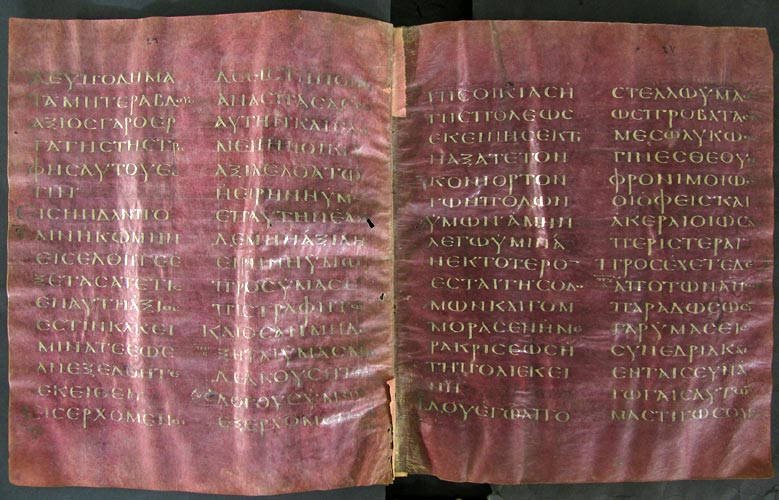 ΔΕΥΠΟΔΗΜΑ
ΤΑΜΗΤΕΡΑΒΔΟΥϹ
ΑΞΙΟϹΓΑΡΟΕΡ
ΓΑΤΗϹΤΗϹΤΡΟ
ΦΗϹΑΥΤΟΥΕϹ
ΤΙΝ
ΕΙϹΗΝΔΑΝΠΟ
ΛΙΝΗΚΩΜΗΝ
ΕΙϹΕΛΘΗΤΕΕ
ΞΕΤΑϹΑΤΕΤΙϹ
ΕΝΑΥΤΗΑΞΙΟϹ
ΕϹΤΙΝΚΑΚΕΙ
ΜΙΝΑΤΕΕΩϹ
ΑΝΕΞΕΛΘΗΤΕ
ΕΚΕΙΘΕΝ
ΕΙϹΕΡΧΟΜΕΝΟΙ
ΔΕΕΙϹΤΗΝΟΙΚΙ
ΑΝΑϹΠΑϹΑϹΘΕ
ΑΥΤΗΝΚΑΙΕΑ
ΜΕΝΗΗΟΙΚΙΑ
ΑΞΙΑΕΛΘΑΤΩ
ΗΕΙΡΗΝΗΥΜΩ
ΕΠΑΥΤΗΝΕΑ
ΔΕΜΗΗΑΞΙΑΗ
ΕΙΡΗΝΗΥΜΩ
ΠΡΟϹΥΜΑϹΕ
ΠΙϹΤΡΑΦΗΤΩ
ΚΑΙΟϹΑΝΜΗΔΕ
ΞΗΤΑΙΥΜΑϹΜΗ
ΔΕΑΚΟΥϹΗΤΟΥϹ
ΛΟΓΟΥϹΥΜΩ
ΕΞΕΡΧΟΜΕΝΟΙ
ΤΗϹΟΙΚΙΑϹΗ
ΤΗϹΠΟΛΕΩϹ
ΕΚΕΙΝΗϹΕΚΤΙ
ΝΑΞΑΤΕΤΟΝ
ΚΟΝΙΟΡΤΟΝ
ΤΩΝΠΟΔΩΝ
ΥΜΩΝΑΜΗΝ
ΛΕΓΩΥΜΙΝΑ
ΝΕΚΤΟΤΕΡΟ
ΕϹΤΑΙΓΗϹΟΔΟ
ΜΩΝΚΑΙΓΟΜ
ΜΟΡΑϹΕΝΗΜΕ
ΡΑΚΡΙϹΕΩϹΗ
ΤΗΠΟΛΙΕΚΕΙ
ΝΗ
ΙΔΟΥΕΓΩΑΠΟ
ϹΤΕΛΛΩΥΜΑ
ΩϹΠΡΟΒΑΤΑ
ΕΜΜΕϹΩΛΥΚΩ
ΓΙΝΕϹΘΕΟΥ
ΦΡΟΝΙΜΟΙΩ
ΟΙΟΦΕΙϹΚΑΙ
ΑΚΕΡΑΙΟΙΩϹ
ΠΕΡΙϹΤΕΡΑΙ
ΠΡΟϹΕΧΕΤΕΔΕ
ΑΠΟΤΩΝΑΝΩΝ
ΠΑΡΑΔΩϹΟΥ
ΓΑΡΥΜΑϹΕΙϹ
ϹΥΝΕΔΡΙΑΚΑΙ
ΕΝΤΑΙϹϹΥΝΑ
ΓΩΓΑΙϹΑΥΤΩ
ΜΑϹΤΙΓΩϹΟΥ